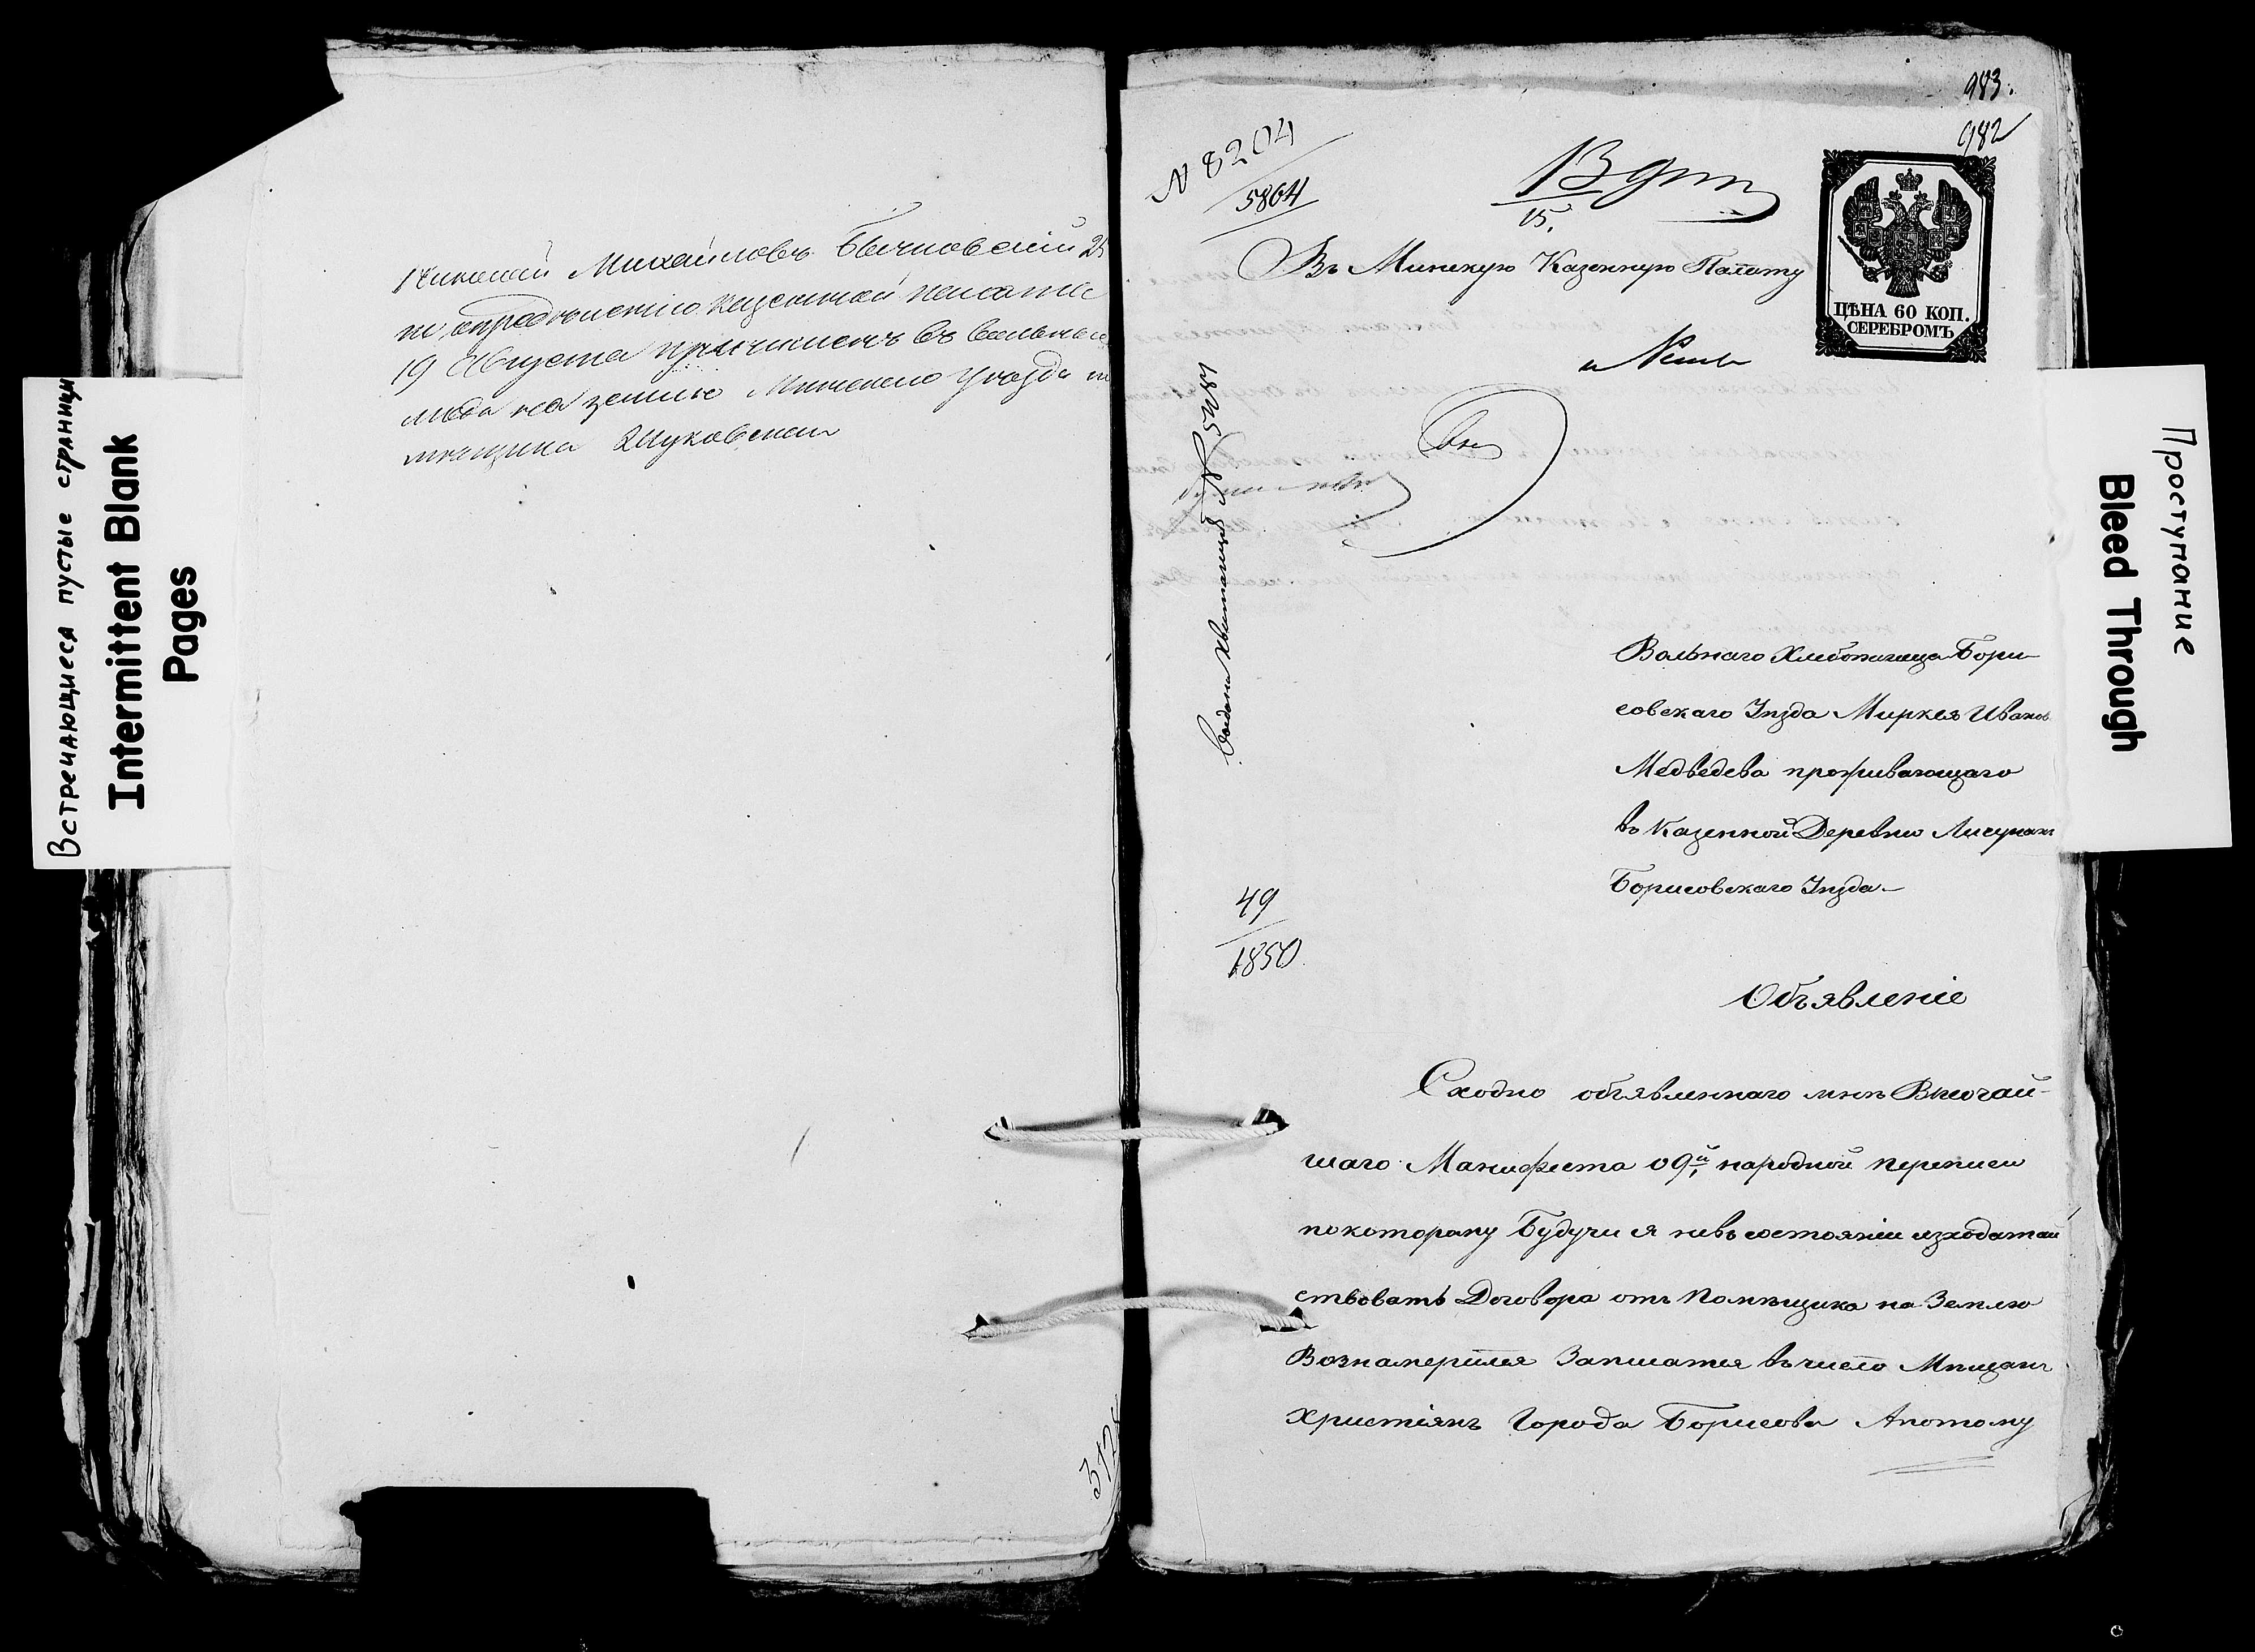 Встречающиеся пустые страницы
Intermittent Blank
Pages
Николай Михайловъ Бычковскій 25
по опредѣленію казенной палаты
19 Августа причисленъ въ вольные
люди на землю Минскаго уѣзда по
мѣщика Жуковскаго
312
983.
982
N 8204
5864
13
15.
Въ Минскую Казенную Палату
ЦѢНА 60 КОП.
СЕРЕБРОМЪ
Выдана квитанція № 5481
Вольнаго Хлѣбопашца Бори
совскаго Уѣзда Миркея Иванов
Медведева проживающаго
въ Казенной Деревнѣ
Борисовскаго Уѣзда
49
1850
Объявленіе
Сходно объявленнаго мнѣ Высочай-
шаго Манифеста о 9й народной переписи
по котораму Будучи я не въ состояніи изходатай
ствовать Договора отъ Помѣщика на Землю
Вознамерился Записатся въ число Мѣщанъ
Христіянъ Города Борисова Апотому
Проступание
Bleed Through